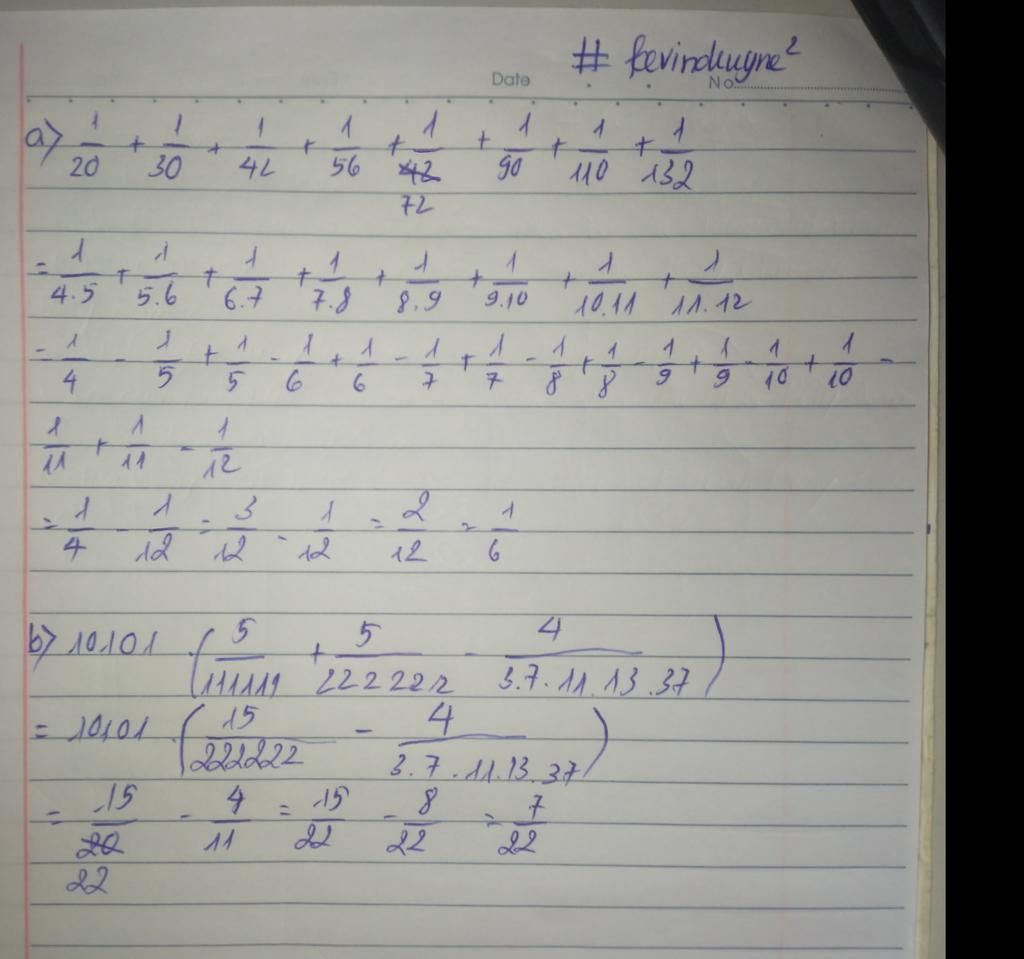 # kevinduyne²
Date No
a) 1/20 + 1/30 + 1/42 + 1/56 + 1/72 + 1/90 + 1/110 + 1/132
= 1/4.5 + 1/5.6 + 1/6.7 + 1/7.8 + 1/8.9 + 1/9.10 + 1/10.11 + 1/11.12
= 1/4 - 1/5 + 1/5 - 1/6 + 1/6 - 1/7 + 1/7 - 1/8 + 1/8 - 1/9 + 1/9 - 1/10 + 1/10 -
1/11 + 1/11 - 1/12
= 1/4 - 1/12 = 3/12 - 1/12 = 2/12 = 1/6
b) 10101 . (5/111111 + 5/222222 - 4/3.7.11.13.37)
= 10101 . (15/222222 - 4/3.7.11.13.37)
= 15/22 - 4/11 = 15/22 - 8/22 = 7/22